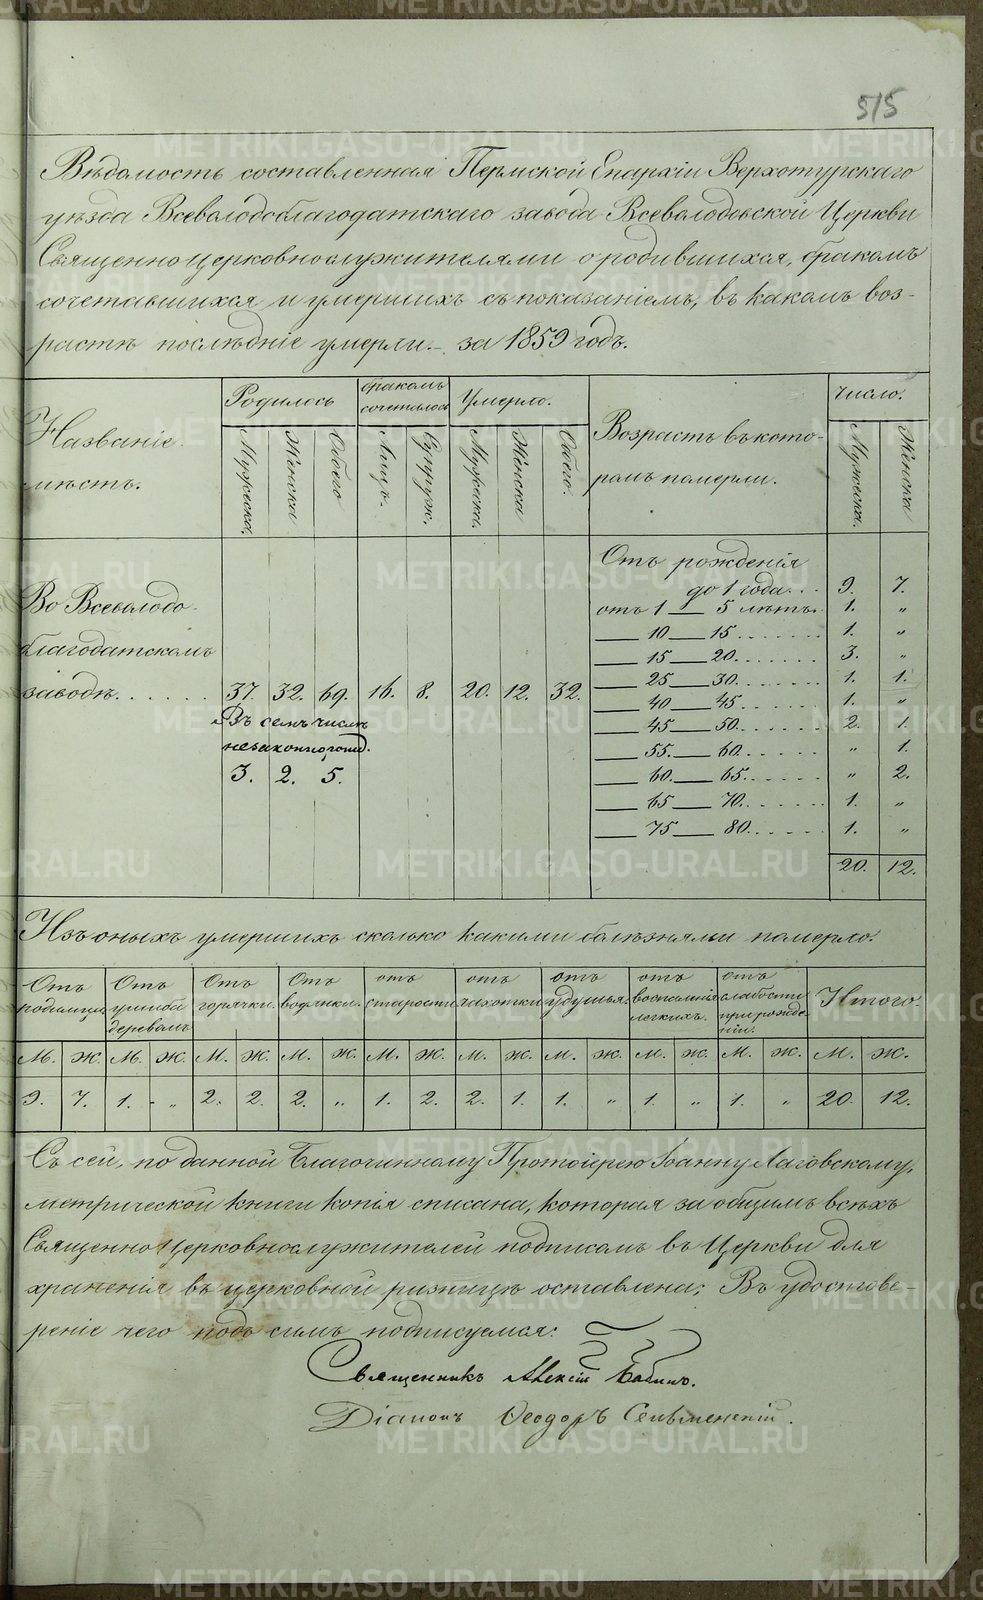 515
Вѣдомость составленная Пермской Епархіи Верхотурскаго
уѣзда Всеволодоблагодатскаго завода Всеволодовской Церкви
Священноцерковнослужителями о родившихся, бракомъ
сочетавшихся и умершихъ съ показаніемъ, въ какомъ воз-
растѣ послѣдніе умерли. за 1859 годъ.
Названіе мѣстъ. Родилось Мужеска. Женска Обоего бракомъ сочеталось Лицъ. Супруж. Умерло. Мужеска. Женска Обоего. Возрастъ въ кото-ромъ померли. Число. Мужеска. Женска
Отъ рожденія
до 1 года... 9. 7.
отъ 1 — 5 лѣтъ. 1. „
— 10 — 15....... 1. „
— 15 — 20....... 3. „
Во Всеволодо-
благодатскомъ
заводѣ...... 37. 32. 69. 16. 8. 20. 12. 32.
— 25 — 30....... 1. 1.
— 40 — 45....... 1. „
— 45 — 50....... 2. 1.
— 55. — 60...... „ 1.
— 60. — 65...... „ 2.
— 65 — 70....... 1. „
— 75 — 80....... 1. „
Въ семъ числѣ
незаконнорожд.
3. 2. 5.
20. 12.
Изъ оныхъ умершихъ сколько какими болѣзнями померло.
Отъ родимца Отъ ушиба деревомъ Отъ горячки. Отъ водянки. отъ старости отъ чахотки отъ удушья. отъ воспаленія легкихъ. отъ слабости при рожде-ніи. Итого.
М. Ж. М. Ж. М. Ж. М. Ж. М. Ж. М. Ж. М. Ж. М. Ж. М. Ж. М. Ж.
9. 7. 1. „ 2. 2. 2. „ 1. 2. 2. 1. 1. „ 1. „ 1. „ 20. 12.
Съ сей, поданной Благочинному Протоіерею Іоанну Лаговскому,
метрической книги копія списана, которая за общимъ всѣхъ
Священноцерковнослужителей подписомъ въ Церкви для
храненія въ церковной ризницѣ оставлена; Въ удостове-
реніе чего подъ симъ подписуемся:
Священникъ Алексій Бабинъ.
Діаконъ Феодоръ
METRIKI.GASO-URAL.RU